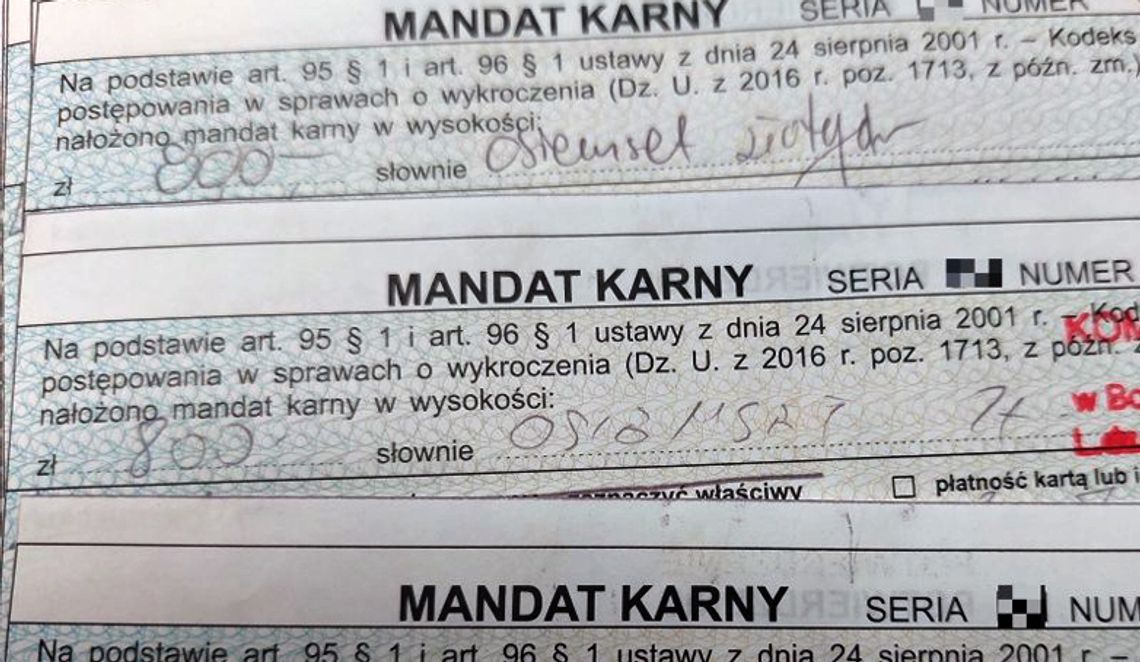 MANDAT KARNY SERIA NUMER
Na podstawie art. 95 § 1 i art. 96 § 1 ustawy z dnia 24 sierpnia 2001 r. – Kodeks
postępowania w sprawach o wykroczenia (Dz. U. z 2016 r. poz. 1713, z późn. zm.)
nałożono mandat karny w wysokości:
zł 800,- słownie osiemset złotych
MANDAT KARNY SERIA NUMER
Na podstawie art. 95 § 1 i art. 96 § 1 ustawy z dnia 24 sierpnia 2001 r. – Kod
postępowania w sprawach o wykroczenia (Dz. U. z 2016 r. poz. 1713, z późn. z
nałożono mandat karny w wysokości:
zł 800 słownie
KOM
w Bo
właściwy płatność kartą lub i
MANDAT KARNY SERIA NUM
Na podstawie art. 95 § 1 i art. 96 § 1 ustawy z dnia 24 sierpnia 2001 r. –